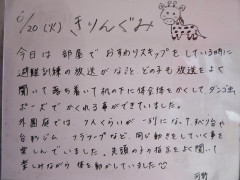 6/20 (火) きりんぐみ
今日は部屋でおすわりスキップをしている時に
避難訓練の放送がなるとどの子も放送をよく
聞いて落ち着いて机の下に体全体をかくして ダンゴ虫
ポーズでかくれる事ができていました。
外園庭では 7人くらいが一列になって
台形ジム フラフープなど、同じ動きをしていく事を楽
しんでいました。先頭の子の指示をよく聞いて
楽しみながら体を動かしていました
河野